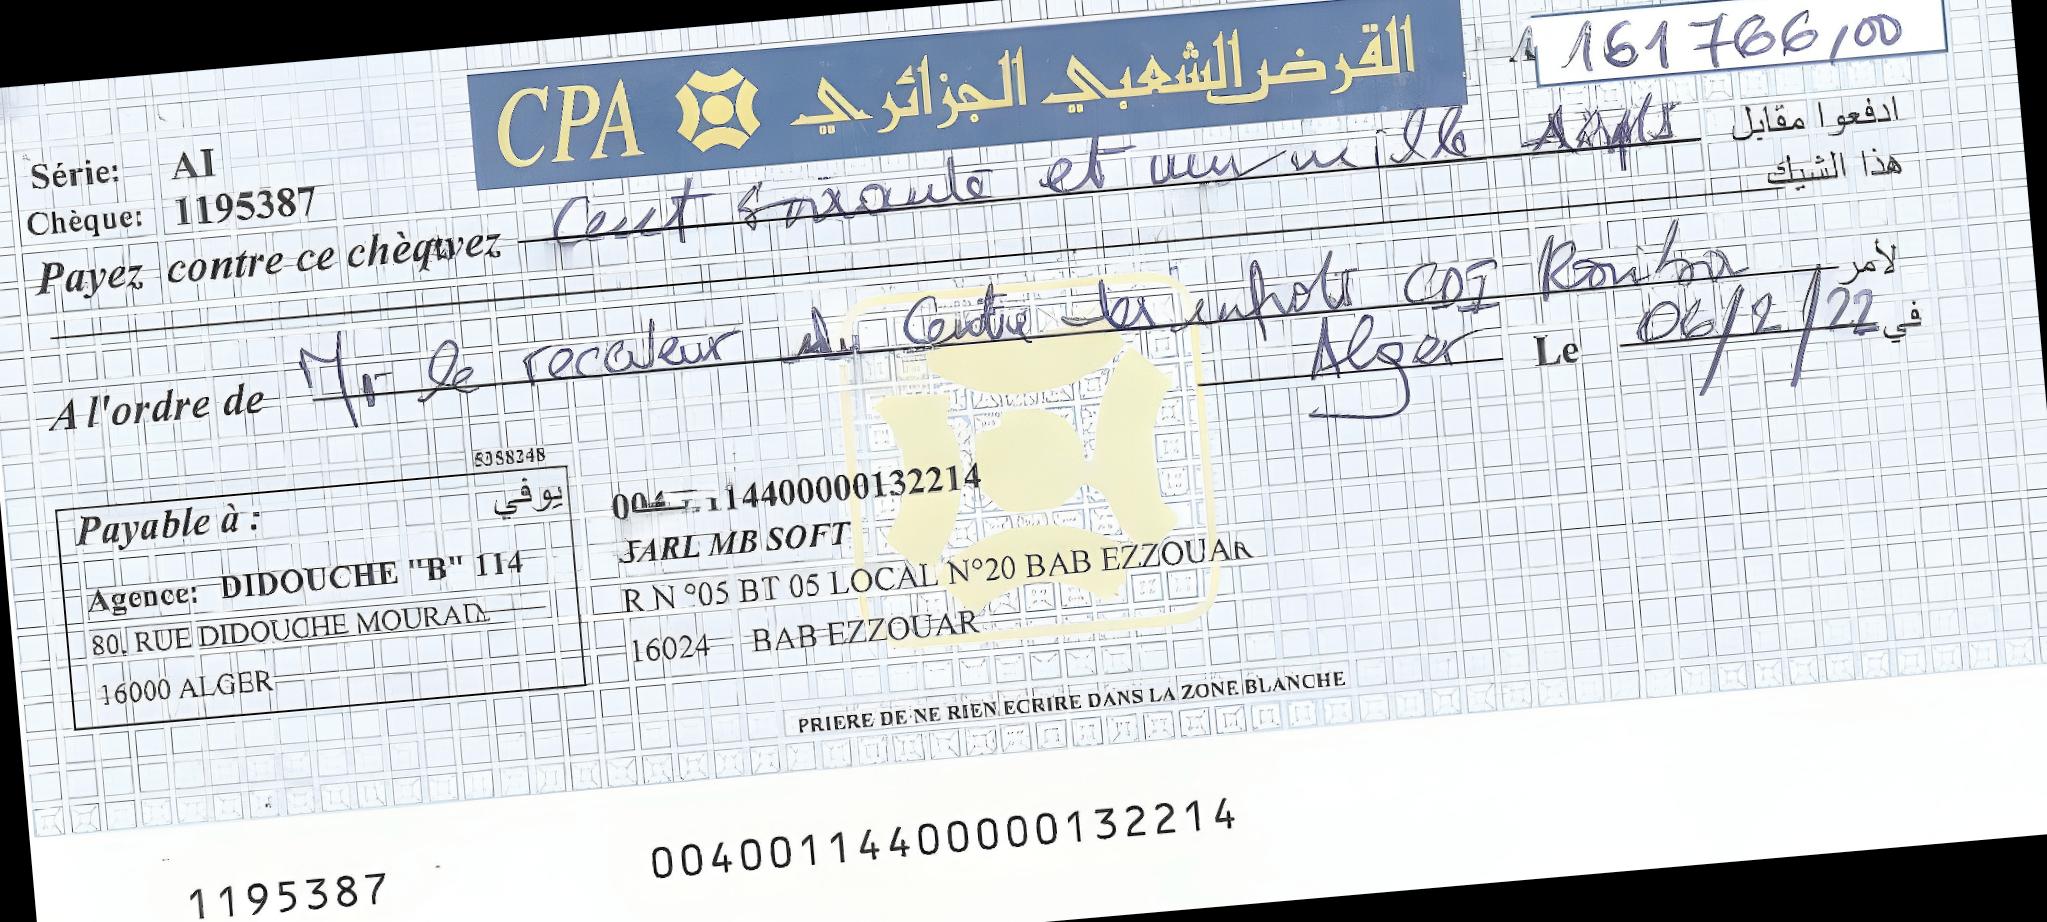 CPA القرض الشعبي الجزائري
161766,00
Série: AI
Chèque: 1195387
ادفعوا مقابل
هذا الشيك
Payez contre ce chèque
Cent soixante et un mille
A l'ordre de Mr le receveur du Centre des impots CDI Rouiba لأمر
Alger Le 06/2/22 في
5358248
Payable à : يوفي
Agence: DIDOUCHE "B" 114
80, RUE DIDOUCHE MOURAD
16000 ALGER
11400000132214
SARL MB SOFT
R N °05 BT 05 LOCAL N°20 BAB EZZOUAR
16024 BAB EZZOUAR
PRIERE DE NE RIEN ECRIRE DANS LA ZONE BLANCHE
1195387 00400114400000132214